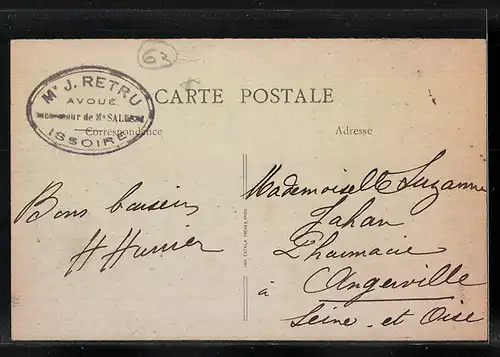 63
Mᵉ J. RETRU
AVOUÉ
Successeur de Mᵉ SALLES
ISSOIRE
CARTE POSTALE
Correspondance
Adresse
Bons baisers
Mademoiselle Suzanne
Jahan
Pharmacie
Angerville
à
Seine et Oise
IMP. CATALA FRÈRES, PARIS